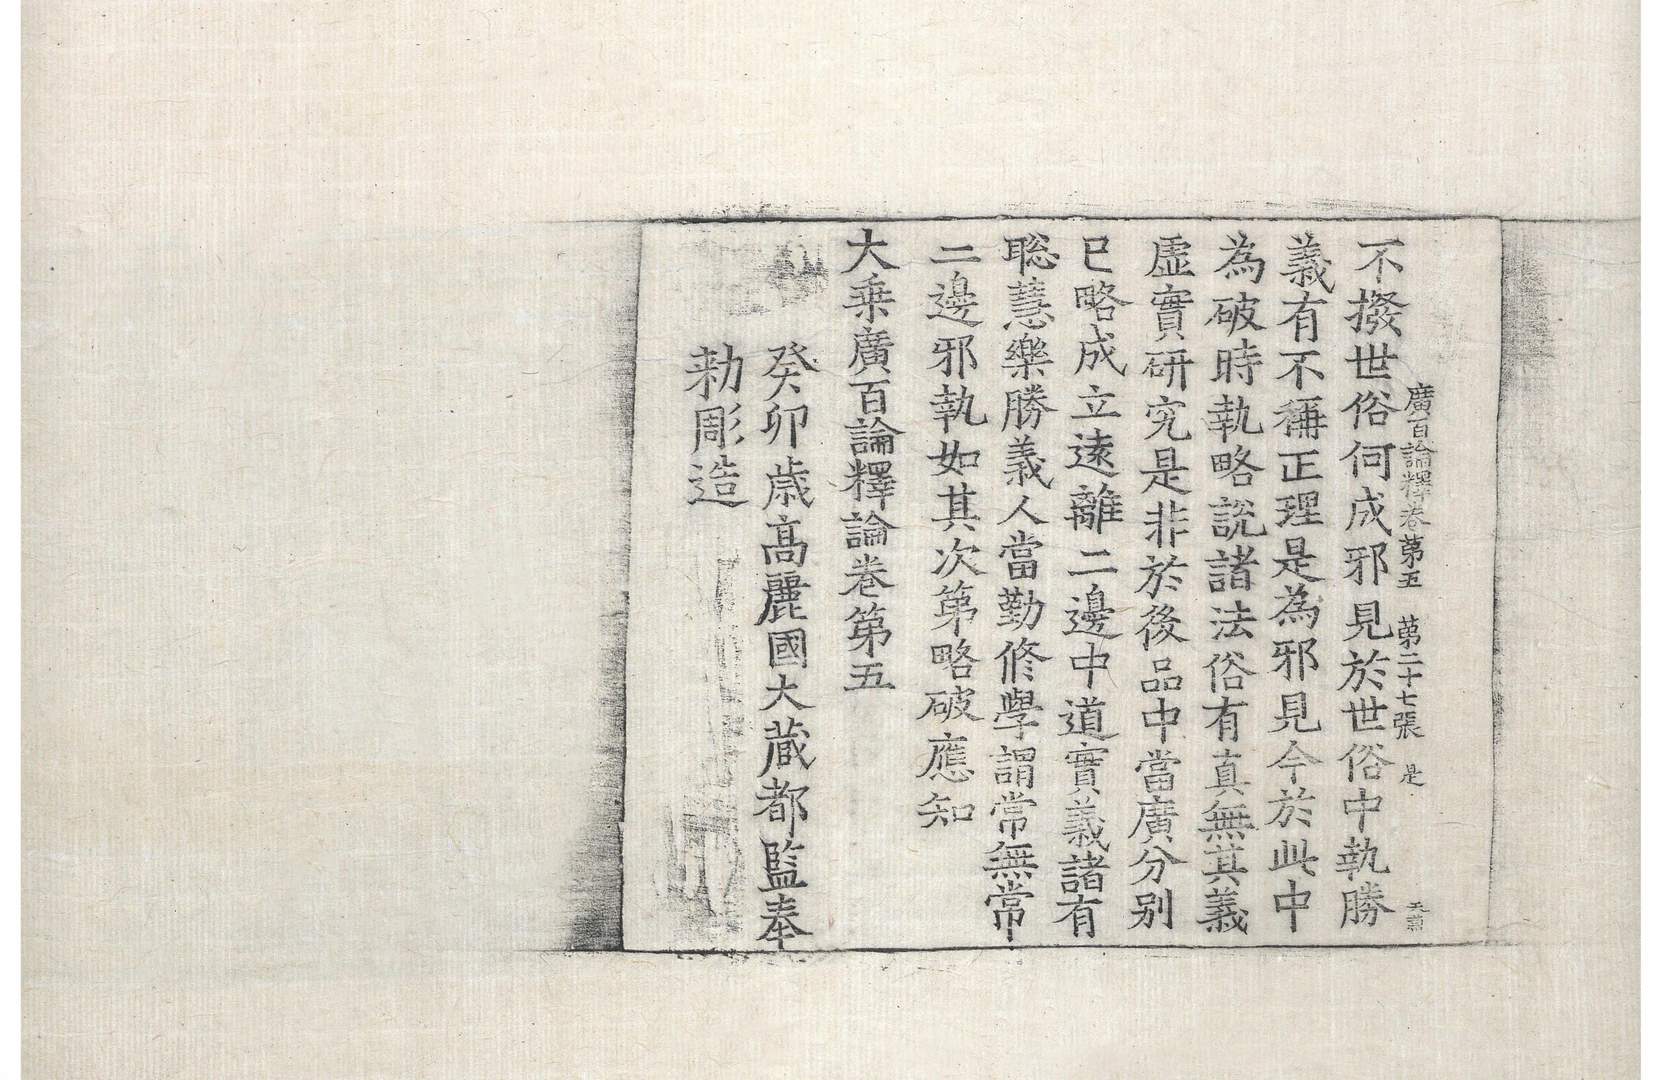 廣百論釋卷第五 第二十七張 是
不撥世俗何成邪見於世俗中執勝
義有不稱正理是為邪見今於此中
為破時執略說諸法俗有真無其義
虛實研究是非於後品中當廣分別
已略成立遠離二邊中道實義諸有
聡慧樂勝義人當勤修學謂常無常
二邊邪執如其次第略破應知
大乘廣百論釋論卷第五
癸卯歲高麗國大藏都監奉
勅彫造